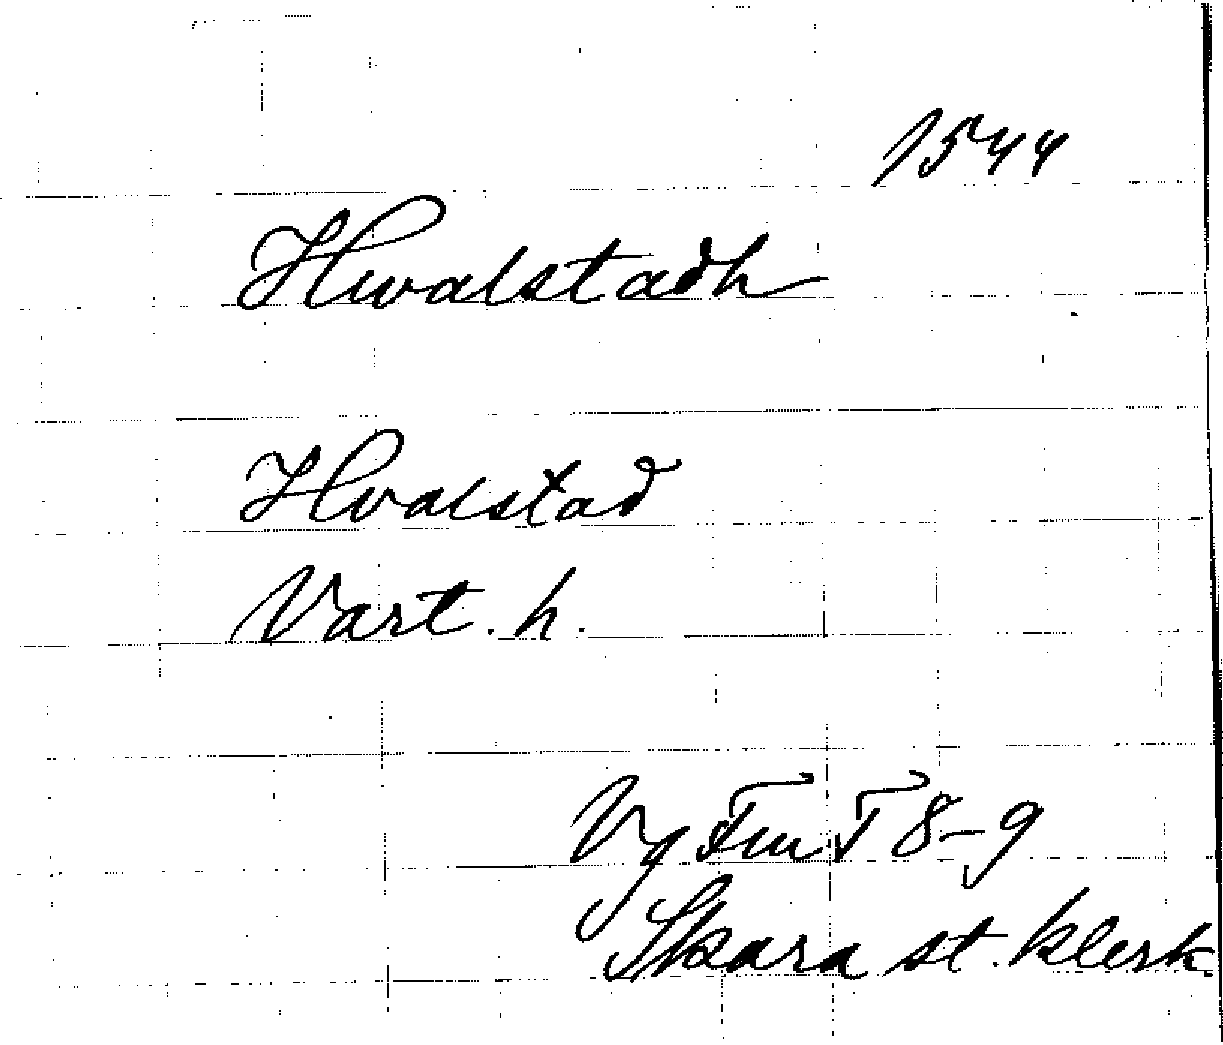 1544
Hwalstadh
Hvalstad
Vart. h.
Vg Fm T 8-9
Skara st. klerk.